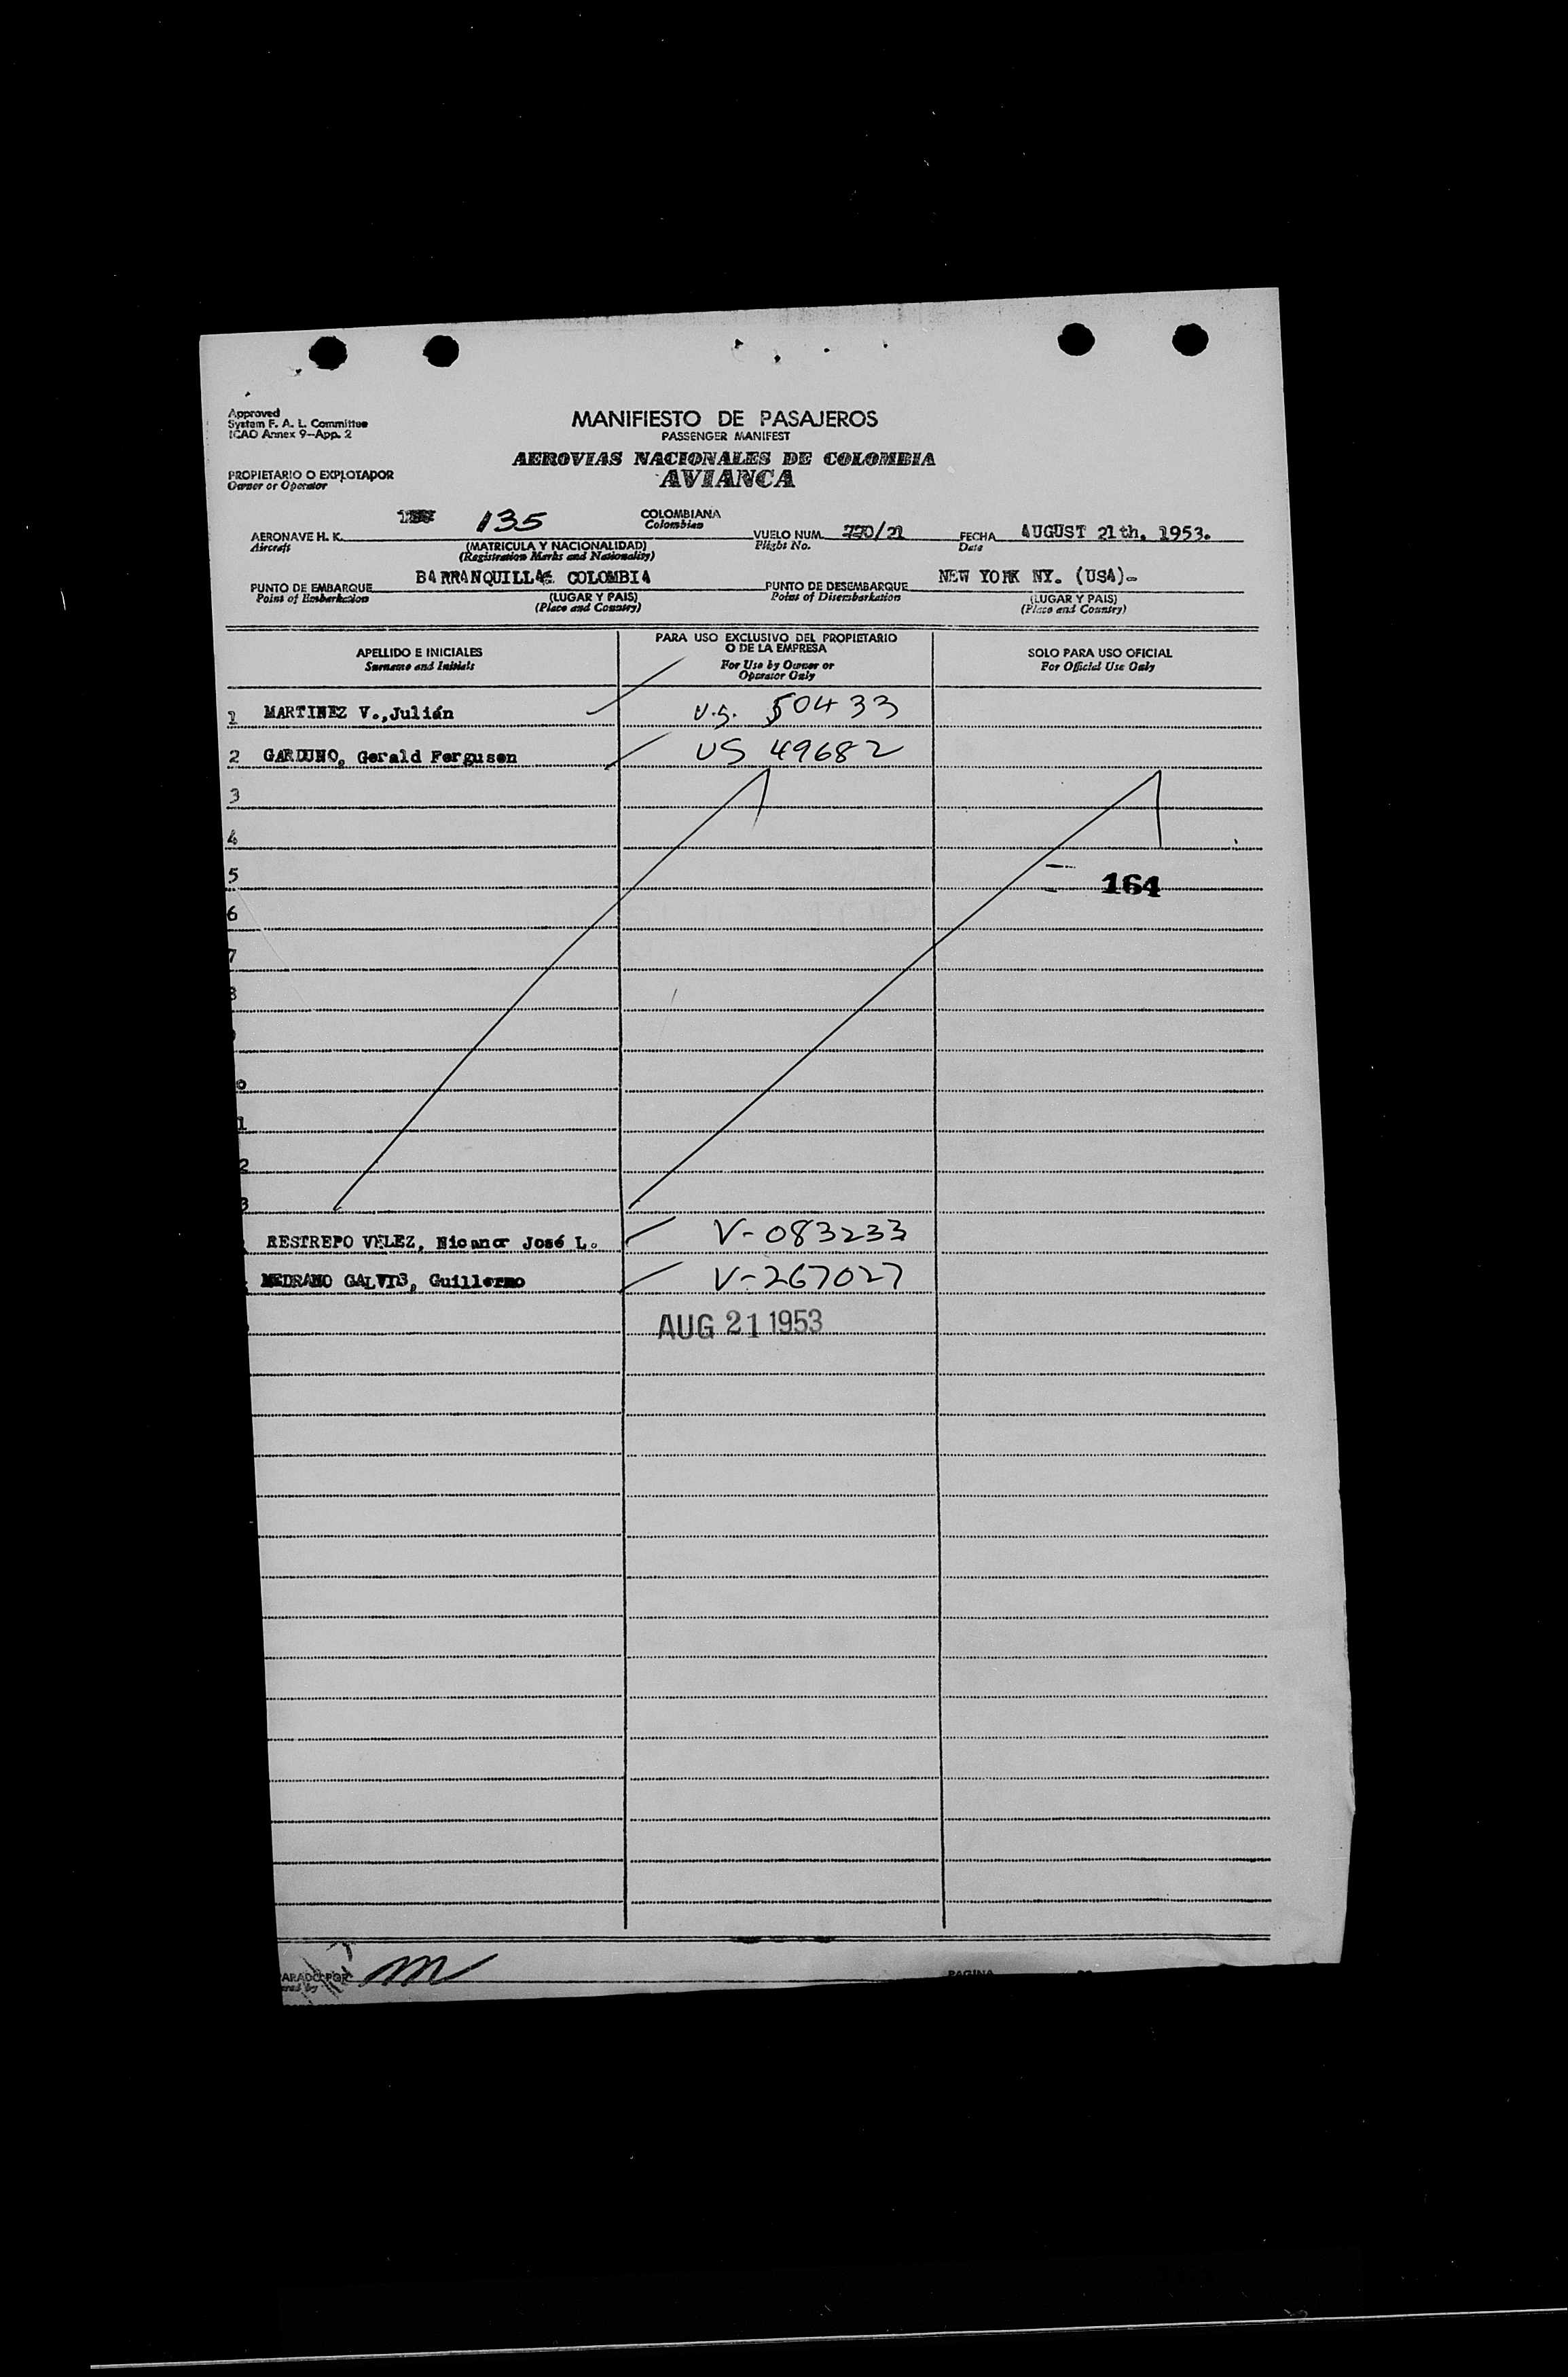 Approved
System F. A. L. Committee
ICAO Annex 9-App. 2
MANIFIESTO DE PASAJEROS
PASSENGER MANIFEST
AEROVIAS NACIONALES DE COLOMBIA
AVIANCA
PROPIETARIO O EXPLOTADOR
Owner or Operator
AERONAVE H. K. 135 COLOMBIANA
Aircraft Colombian
(MATRICULA Y NACIONALIDAD)
(Registration Marks and Nationality)
VUELO NUM. 770/21
Flight No.
FECHA AUGUST 21th. 1953.
Date
PUNTO DE EMBARQUE BARRANQUILLA COLOMBIA
Point of Embarkation
(LUGAR Y PAIS)
(Place and Country)
PUNTO DE DESEMBARQUE NEW YORK NY. (USA)-
Point of Disembarkation
(LUGAR Y PAIS)
(Place and Country)
APELLIDO E INICIALES
Surname and Initials
PARA USO EXCLUSIVO DEL PROPIETARIO
O DE LA EMPRESA
For Use by Owner or
Operator Only
SOLO PARA USO OFICIAL
For Official Use Only
1 MARTINEZ V.,Julián U.S. 50433
2 GARDUNO, Gerald Ferguson US 49682
3
4
5 164
6
7
8
0
1
2
3
RESTREPO VELEZ, Nicanor José L. V-083233
MEDRANO GALVIS, Guillermo V-267027
AUG 21 1953
PARADO POR m
PAGINA